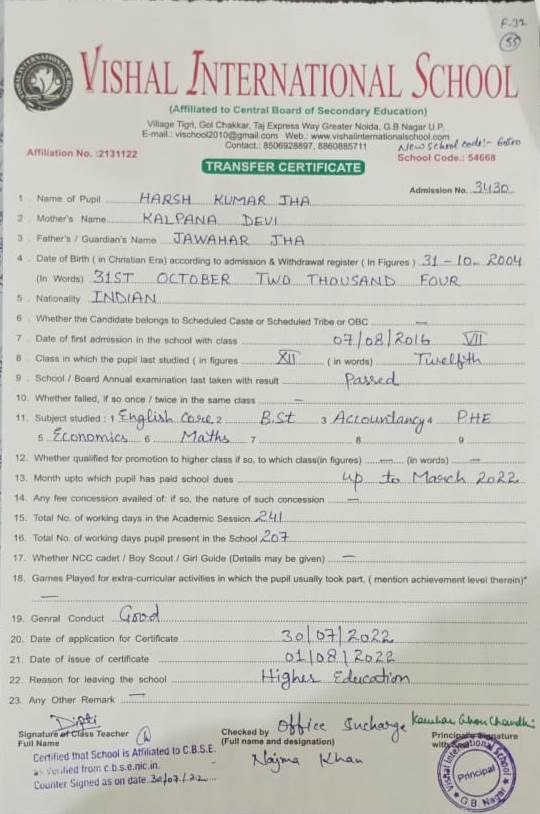 F-32
55
VISHAL INTERNATIONAL SCHOOL
(Affiliated to Central Board of Secondary Education)
Village Tigri, Gol Chakkar, Taj Express Way Greater Noida, G.B Nagar U.P.
E-mail.: vischool2010@gmail.com Web.: www.vishalinternationalschool.com
Contact.: 8506928897, 8860885711
New School code:- 60500
Affiliation No. :2131122
School Code.: 54668
TRANSFER CERTIFICATE
Admission No. 3430
1 . Name of Pupil HARSH KUMAR JHA
2 . Mother's Name KALPANA DEVI
3 . Father's / Guardian's Name JAWAHAR JHA
4 . Date of Birth ( in Christian Era) according to admission & Withdrawal register ( In Figures ) 31-10-2004
(In Words) 31ST OCTOBER TWO THOUSAND FOUR
5 . Nationality INDIAN
6 . Whether the Candidate belongs to Scheduled Caste or Scheduled Tribe or OBC —
7 . Date of first admission in the school with class 07/08/2016 VII
8 . Class in which the pupil last studied ( in figures XII ( in words) Twelfth
9 . School / Board Annual examination last taken with result Passed
10. Whether failed, if so once / twice in the same class —
11. Subject studied : 1 English Core 2 B.St 3 Accountancy 4 PHE
5 Economics 6 Maths 7 8 9
12. Whether qualified for promotion to higher class if so, to which class(in figures) — (in words) —
13. Month upto which pupil has paid school dues up to March 2022
14. Any fee concession availed of: if so, the nature of such concession —
15. Total No. of working days in the Academic Session. 241
16. Total No. of working days pupil present in the School 207
17. Whether NCC cadet / Boy Scout / Girl Guide (Details may be given) —
18. Games Played for extra-curricular activities in which the pupil usually took part, ( mention achievement level therein)*
—
19. Genral Conduct Good
20. Date of application for Certificate 30/07/2022
21. Date of issue of certificate 01/08/2022
22. Reason for leaving the school Higher Education
23. Any Other Remark —
Dipti
Signature of Class Teacher
Full Name
Checked by Office Incharge
(Full name and designation)
Najma Khan
Principal's Signature
with
Certified that School is Affiliated to C.B.S.E.
as verified from c.b.s.e.nic.in.
Counter Signed as on date. 30/07/22
Vishal International School
Principal
G.B. Nagar